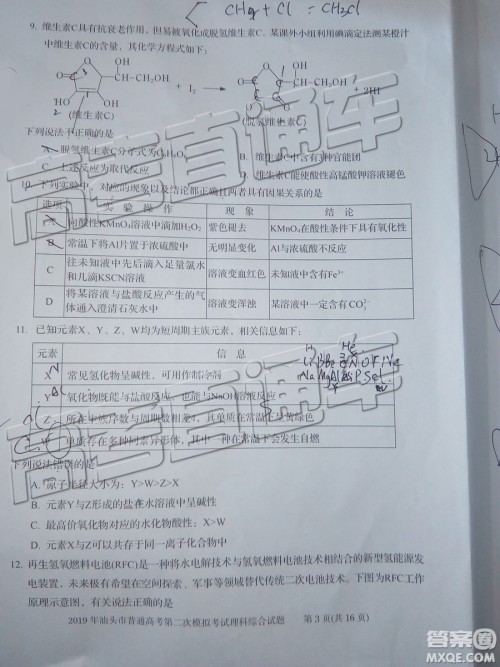 CH₄ + Cl = CH₃Cl
9. 维生素C具有抗衰老作用，但易被氧化成脱氢维生素C。某课外小组利用碘滴定法测某橙汁
中维生素C的含量，其化学方程式如下：
CH—CH₂OH
CH—CH₂OH
+ I₂
+ 2HI
HO OH
OH
(维生素C)
(脱氢维生素C)
下列说法不正确的是
A. 脱氢维生素C分子式为C₆H₆O₆
B. 维生素C中含有3种官能团
C. 上述反应为取代反应
D. 维生素C能使酸性高锰酸钾溶液褪色
10. 下列实验中，对应的现象以及结论都正确且两者具有因果关系的是
选项 实 验 操 作 现 象 结 论
A 向酸性KMnO₄溶液中滴加H₂O₂ 紫色褪去 KMnO₄在酸性条件下具有氧化性
B 常温下将Al片置于浓硫酸中 无明显变化 Al与浓硫酸不反应
C 往未知液中先后滴入足量氯水
和几滴KSCN溶液 溶液变血红色 未知液中含有Fe³⁺
D 将某溶液与盐酸反应产生的气
体通入澄清石灰水中 溶液变浑浊 某溶液中一定含有CO₃²⁻
11. 已知元素X、Y、Z、W均为短周期主族元素，相关信息如下：
元素 信 息
X 常见氢化物呈碱性，可用作制冷剂
Y 氧化物既能与盐酸反应，也能与NaOH溶液反应
Z 所在主族序数与周期数相差4，其单质在常温下呈黄绿色
W 单质存在多种同素异形体，其中一种在常温下会发生自燃
下列说法错误的是
A. 原子半径大小为：Y>W>Z>X
B. 元素Y与Z形成的盐在水溶液中呈碱性
C. 最高价氧化物对应的水化物酸性：X>W
D. 元素X与Z可以共存于同一离子化合物中
12. 再生氢氧燃料电池(RFC)是一种将水电解技术与氢氧燃料电池技术相结合的新型氢能源发
电装置，未来极有希望在空间探索、军事等领域替代传统二次电池技术。下图为RFC工作
原理示意图，有关说法正确的是
2019年汕头市普通高考第二次模拟考试理科综合试题 第 3 页(共 16 页)
高考直通车
高考直通车
高考直通车
答案圈
MXQE.COM